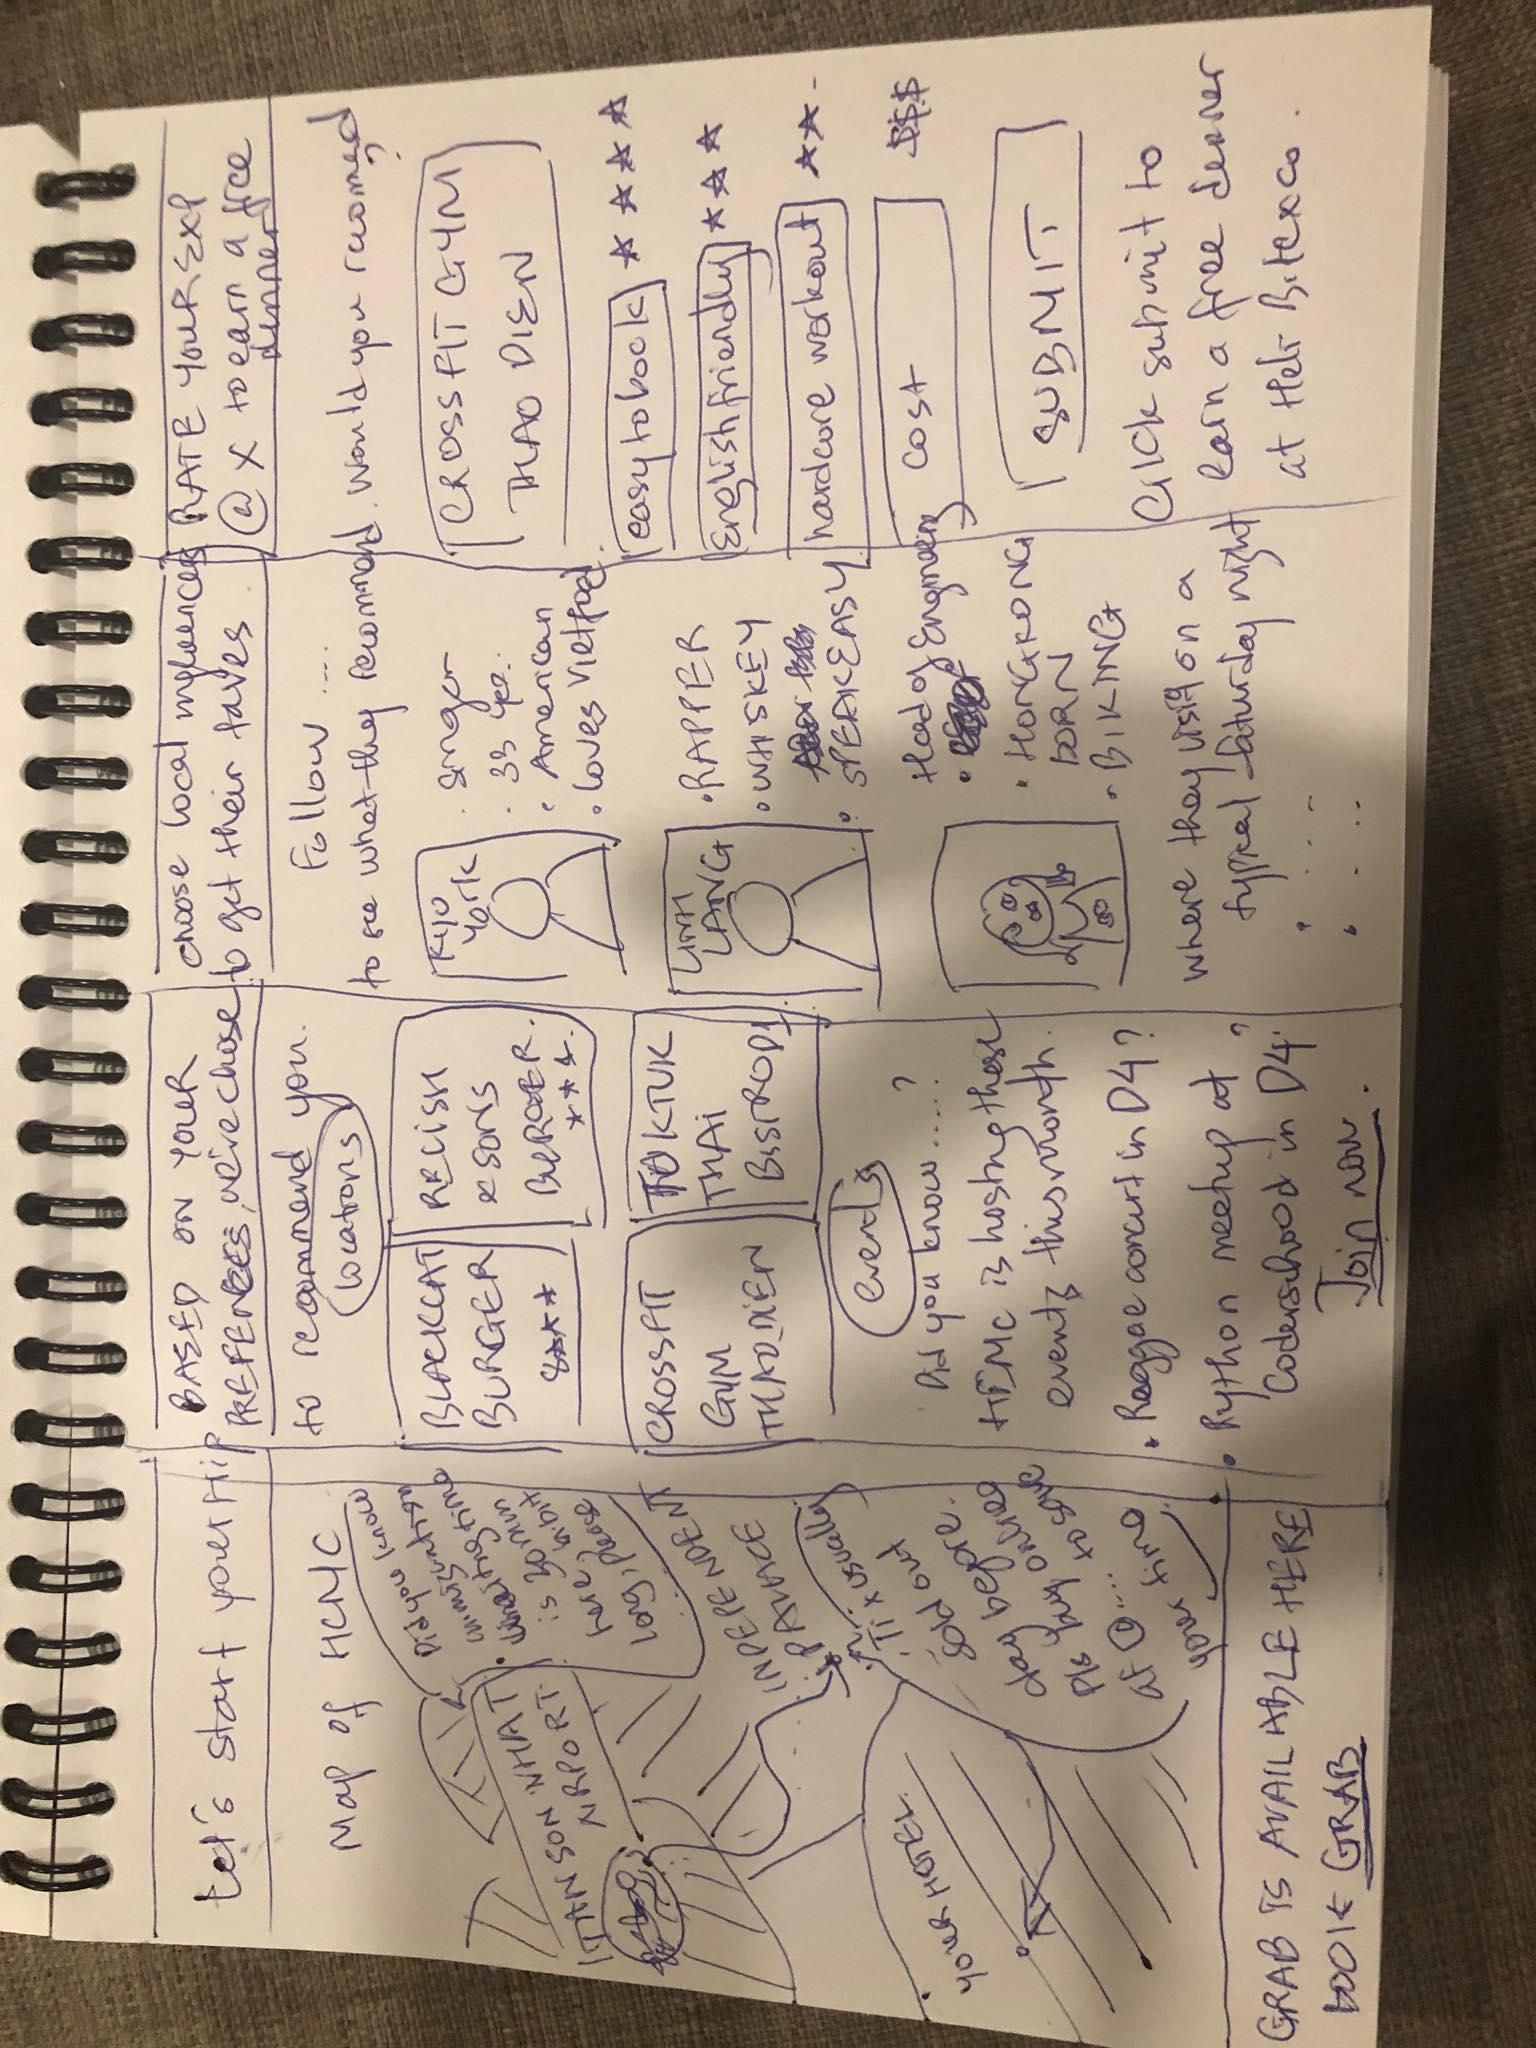 Let's start your trip
Map of HCMC
Did you know
immigration
waiting time
is 30 min
wait
here, please
long,
TAN SON NHAT
AIRPORT
INDEPENDENT
PALACE
Tix usually
sold out
day before.
Pls buy online
at @... to save
your time
YOUR HOTEL
GRAB IS AVAILABLE HERE
BOOK GRAB
BASED ON YOUR
PREFENECES, we've chose
to recommend you.
locations
BLACKCAT
BURGER
RELISH
& SONS
BURGER.
***
CROSSFIT
GYM
THAO DIEN
TUKTUK
THAI
BISTRO D1
events
Did you know....?
HCMC is hosting these
events this month.
• Raggae concert in D4?
• Python meetup at
Coderschool in D4?
Join now.
choose local influencers
to get their faves
Follow ...
to see what they recommend.
KYO
YORK
• singer
• 33 yo.
• American
• loves Vietfood.
LINH
LANG
• RAPPER
• WHISKEY
• SPEAKEASY
• Head of Engineering
• HONGKONG
BORN
• BIKING
where they visit on a
typical Saturday night
• ....
• ....
RATE YOUR EXP
@ X to earn a free
dinner
Would you recomed?
CROSSFIT GYM
THAO DIEN
easy to book ★ ★ ★ ★
English friendly ★ ★ ★
hardcore workout ★ ★ -
cost $$$
SUBMIT.
Click submit to
earn a free dinner
at Heli Bitexco.